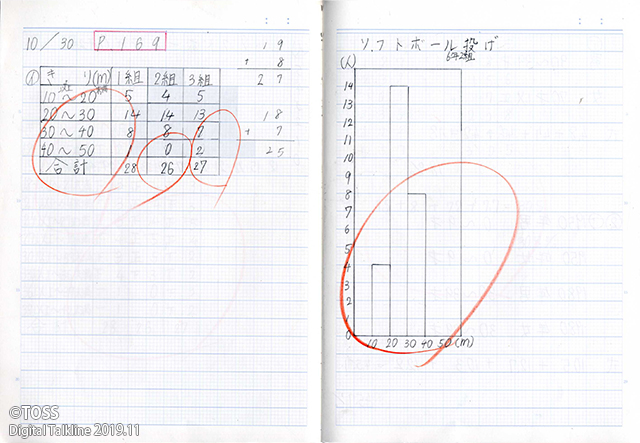 10/30 P.169
19
+ 8
27
① きょり(m) 1組 2組 3組
10~20 5 4 5
20~30 14 14 13
30~40 8 8 7
40~50 1 0 2
合計 28 26 27
18
+ 7
25
ソフトボール投げ
6年2組
(人)
14
13
12
11
10
9
8
7
6
5
4
3
2
1
0
10 20 30 40 50 (m)
©TOSS
Digital Talkline 2019.11